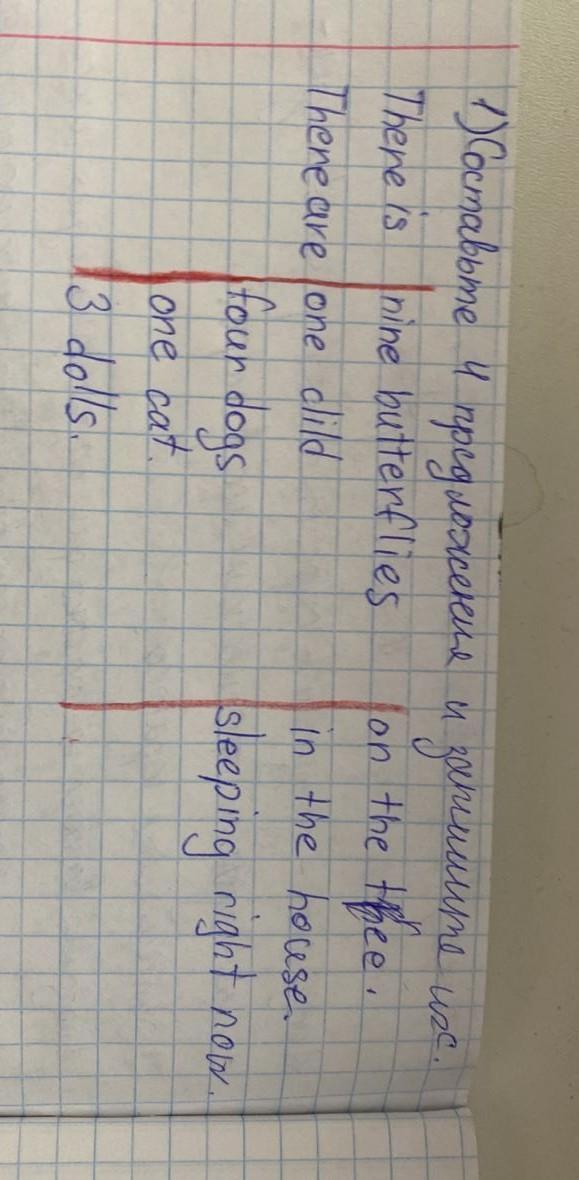 1) Составьте 4 предложения и запишите их.
There is | nine butterflies | on the tree.
There are | one clild | in the house.
four dogs | sleeping right now.
one cat.
3 dolls.